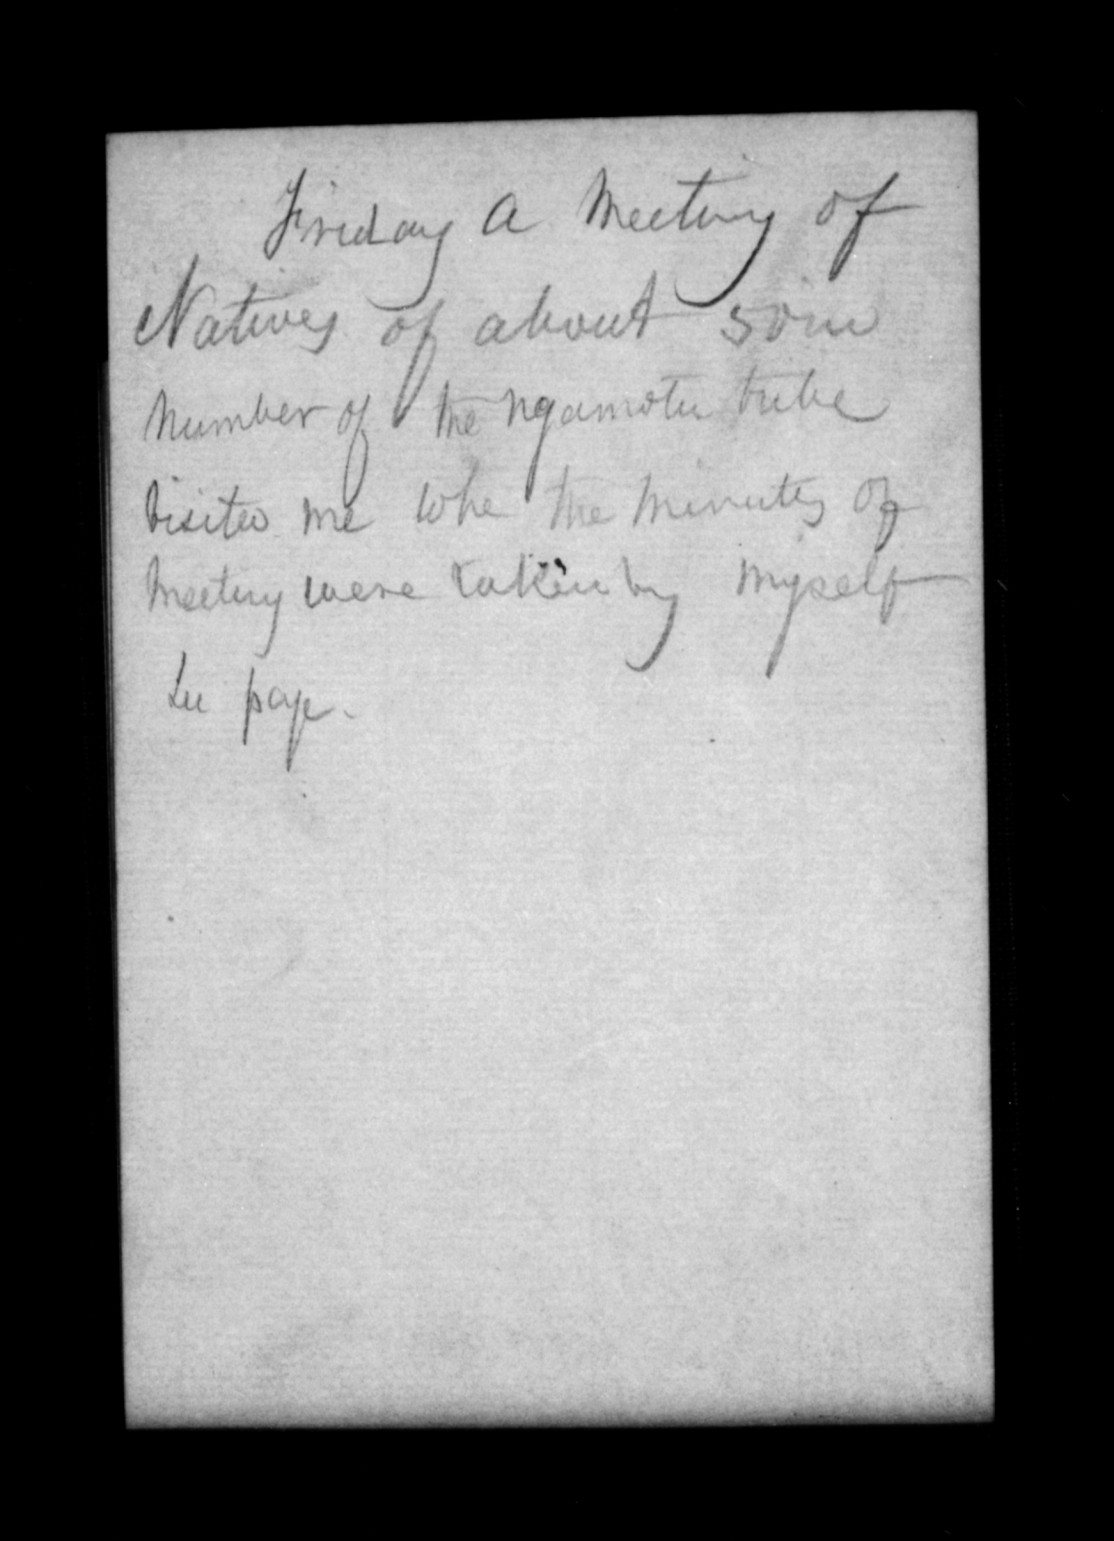 Friday A Meeting of
Natives of about 50 in
number of the ngamotu tribe
visited me whe the minutes of
Meeting were taken by myself
See page.